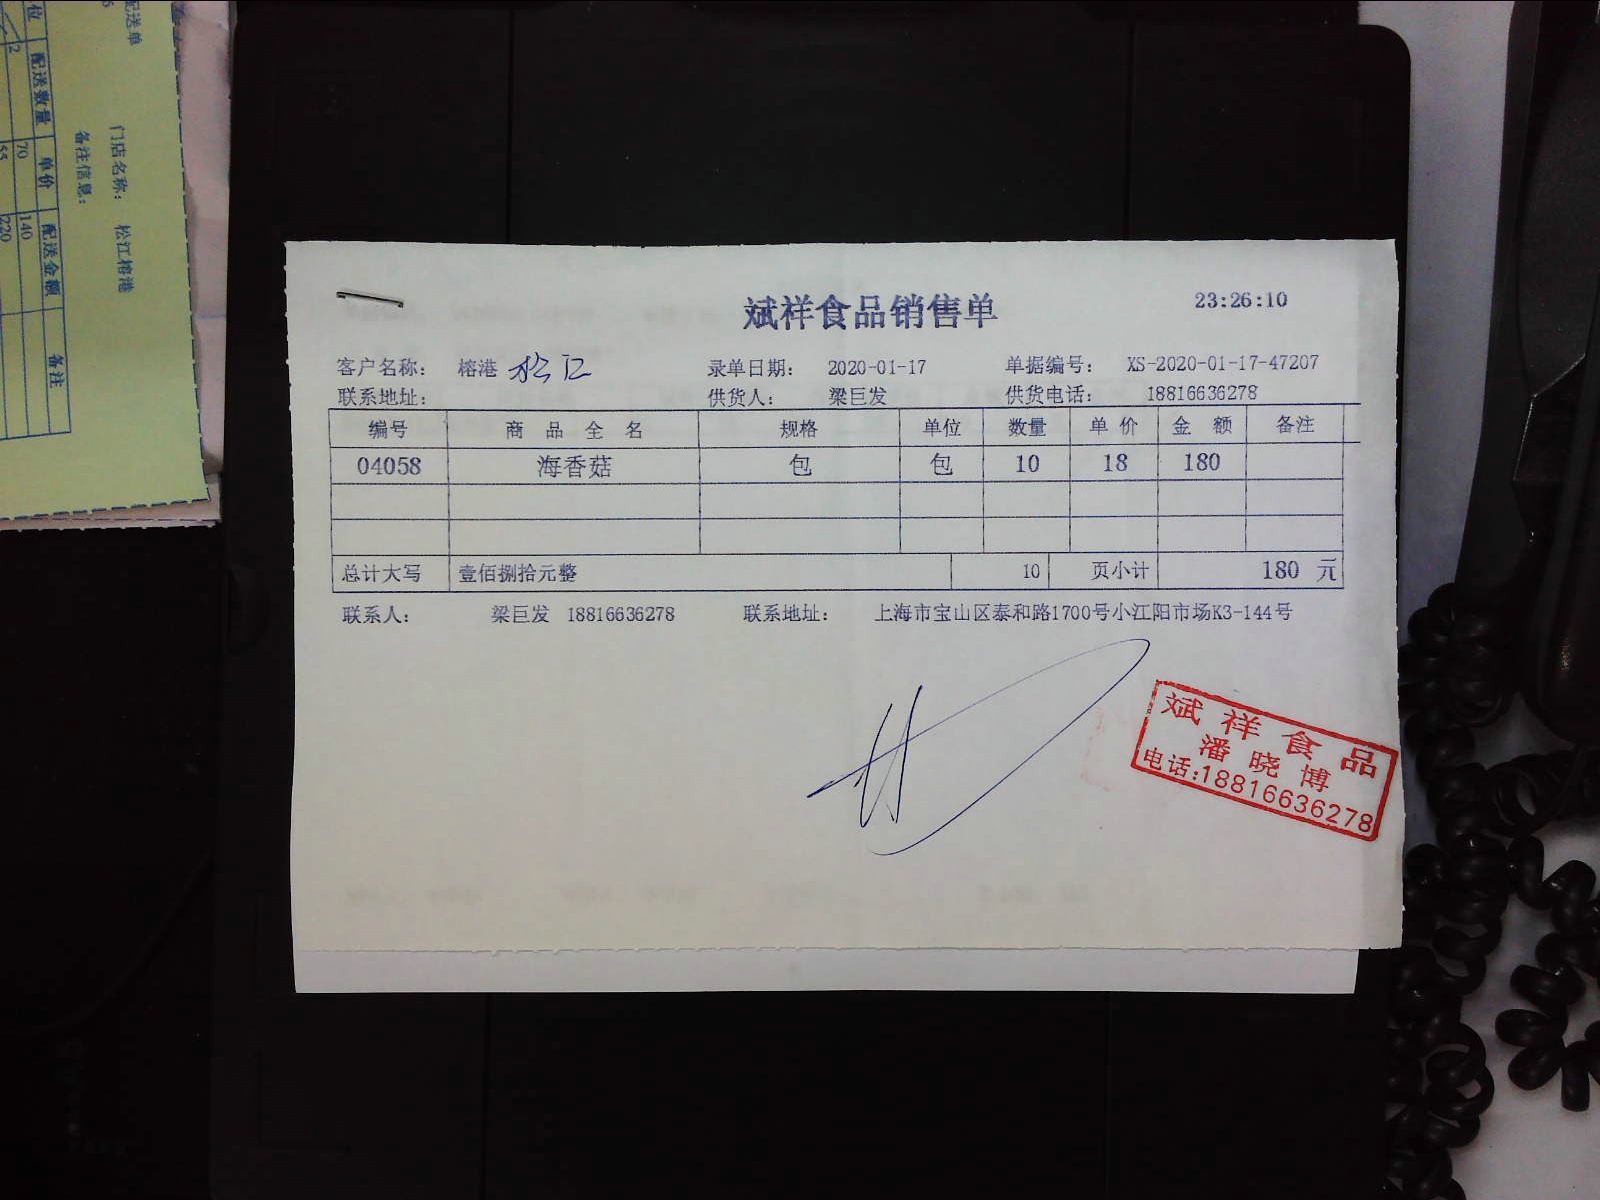 斌祥食品销售单 23:26:10
客户名称: 榕港 松江 录单日期: 2020-01-17 单据编号: XS-2020-01-17-47207
联系地址: 供货人: 梁巨发 供货电话: 18816636278
编号 商品全名 规格 单位 数量 单价 金额 备注
04058 海香菇 包 包 10 18 180
总计大写 壹佰捌拾元整 10 页小计 180 元
联系人: 梁巨发 18816636278 联系地址: 上海市宝山区泰和路1700号小江阳市场K3-144号
斌祥食品
潘晓博
电话:18816636278
配送单
门店名称: 松江榕港
备注信息:
位 配送数量 单价 配送金额 备注
2 70 140
55 220